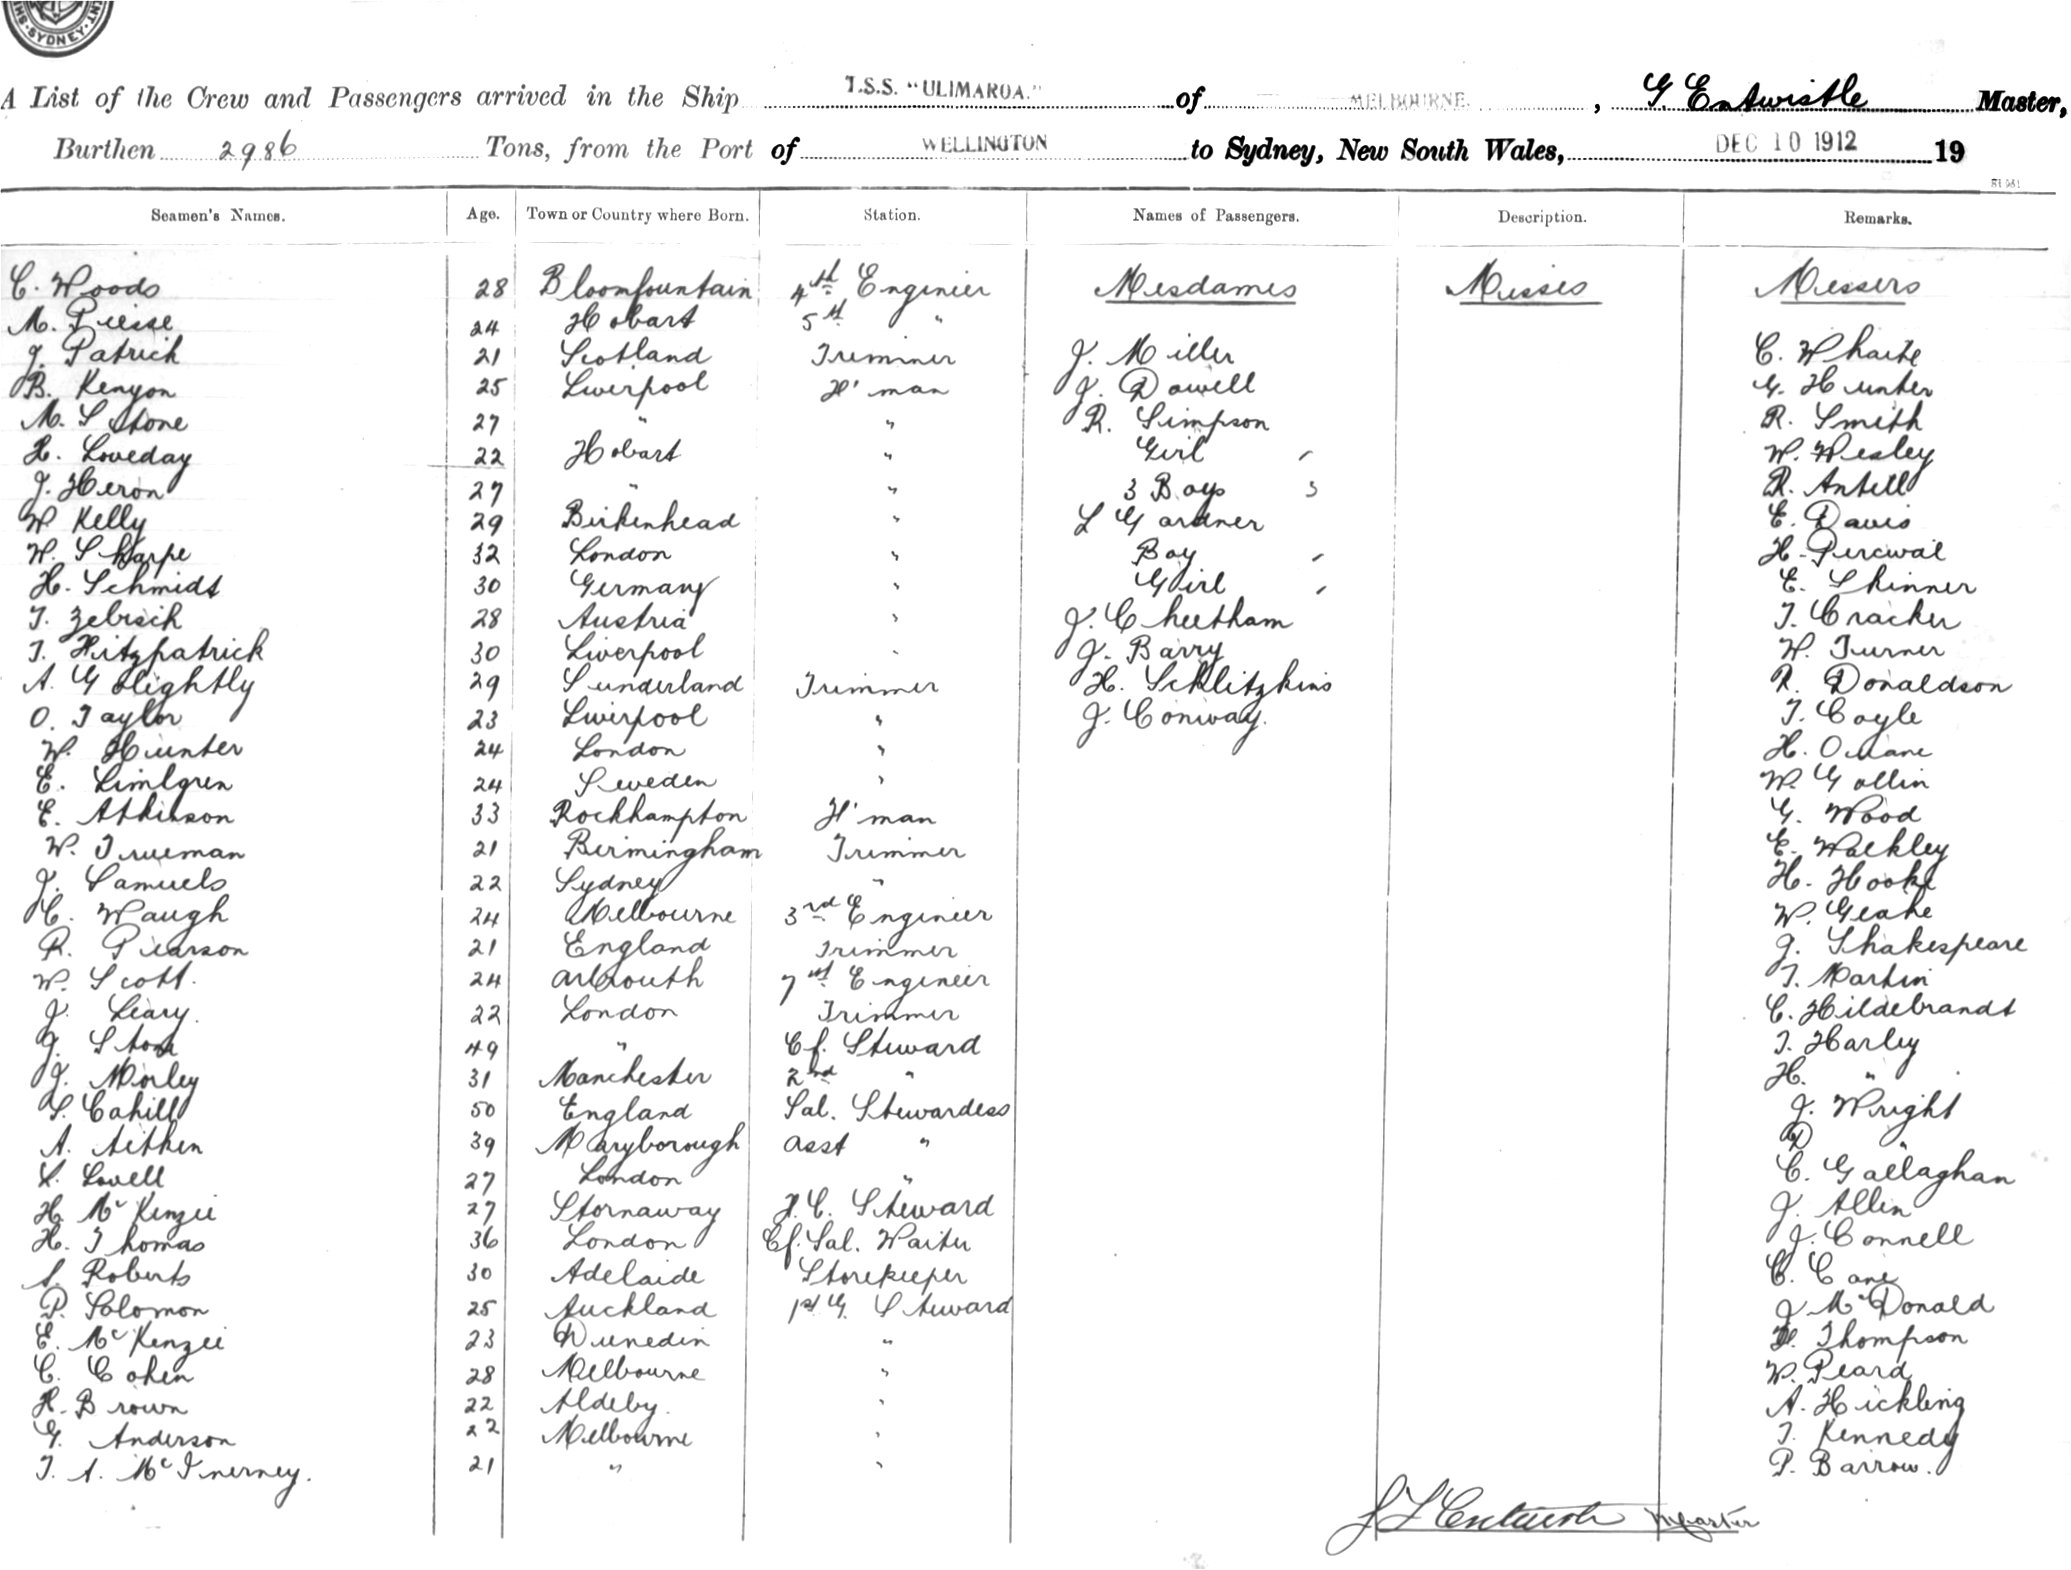 SYDNEY
A List of the Crew and Passengers arrived in the Ship T.S.S. "ULIMAROA." of MELBOURNE. , G Entwistle Master,
Burthen 2986 Tons, from the Port of WELLINGTON to Sydney, New South Wales, DEC 10 1912 19
Seamen's Names. Age. Town or Country where Born. Station. Names of Passengers. Description. Remarks.
C. Woods 28 Bloomfountain 4th Enginier Mesdames Misses Messers
M. Piesse 24 Hobart 5th "
J. Patrick 21 Scotland Trimmer J. Miller C. Whaite
B. Kenyon 25 Liverpool F'man J. Dowell G. Hunter
M. Stone 27 " " R. Simpson R. Smith
R. Loveday 22 Hobart " Girl W. Wesley
J. Heron 27 " " 3 Boys 3 R. Antell
W Kelly 29 Birkenhead " L Gardner E. Davis
W. Sharpe 32 London " Boy H. Percival
H. Schmidt 30 Germany " Girl E. Skinner
T. Zebisch 28 Austria " J. Cheetham T. Cracker
T. Fitzpatrick 30 Liverpool " J. Barry W. Turner
A. Golightly 29 Sunderland Trimmer H. Schlitzkins R. Donaldson
O. Taylor 23 Liverpool " J. Conway. T. Coyle
W. Hunter 24 London " H.
E. Limlgren 24 Sweden " W. Gollin
E. Atkinson 33 Rockhampton F'man G. Wood
W. Trueman 21 Birmingham Trimmer E. Walkley
J. Samuels 22 Sydney " H. Hooke
C. Waugh 24 Melbourne 3rd Engineer W. Geake
R. Pearson 21 England Trimmer J. Shakespeare
W. Scott. 24 Arbrouth 7th Engineer T. Martin
J. Leary. 22 London Trimmer C. Hildebrandt
J. Stone 49 " Cf. Steward T. Harley
J. Morley 31 Manchester 2nd " H. "
S. Cahill 50 England Sal. Stewardess J. Wright
A. Aitken 39 Maryborough asst " D "
L. Lovell 27 London " C. Gallaghan
H. McKenzie 27 Stornaway F.C. Steward J. Allen
H. Thomas 36 London Cf. Sal. Waiter J. Connell
A. Roberts 30 Adelaide Storekeeper C. Cane
P. Solomon 25 Auckland 1st G. Steward J McDonald
E. McKenzie 23 Dunedin " Thompson
C. Cohen 28 Melbourne " W. Peard
H. Brown 22 Aldeby. " A. Hickling
G. Anderson 22 Melbourne " T. Kennedy
T. A. McInerney. 21 " " P. Barrow.
Master